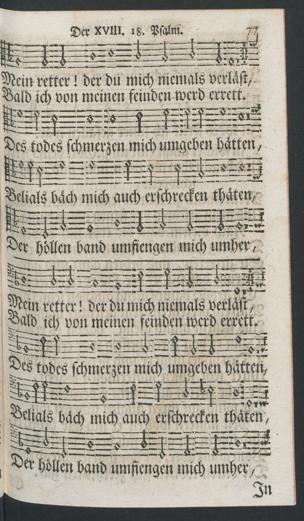 Der XVIII. 18. Psalm. 77
Mein retter! der du mich niemals verläst,
Bald ich von meinen feinden werd errett.
Des todes schmerzen mich umgeben hätten,
Belials bäch mich auch erschrecken thäten,
Der höllen band umfiengen mich umher,
Mein retter! der du mich niemals verläst,
Bald ich von meinen feinden werd errett.
Des todes schmerzen mich umgeben hätten,
Belials bäch mich auch erschrecken thäten,
Der höllen band umfiengen mich umher,
In